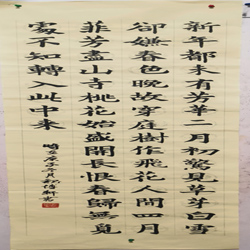 新年都未有芳華二月初驚見草芽白雪
卻嫌春色晚故穿庭樹作飛花人間四月
菲芳盡山寺桃花始盛開長恨春歸無覓
處不知轉入此中來
庚子冬月